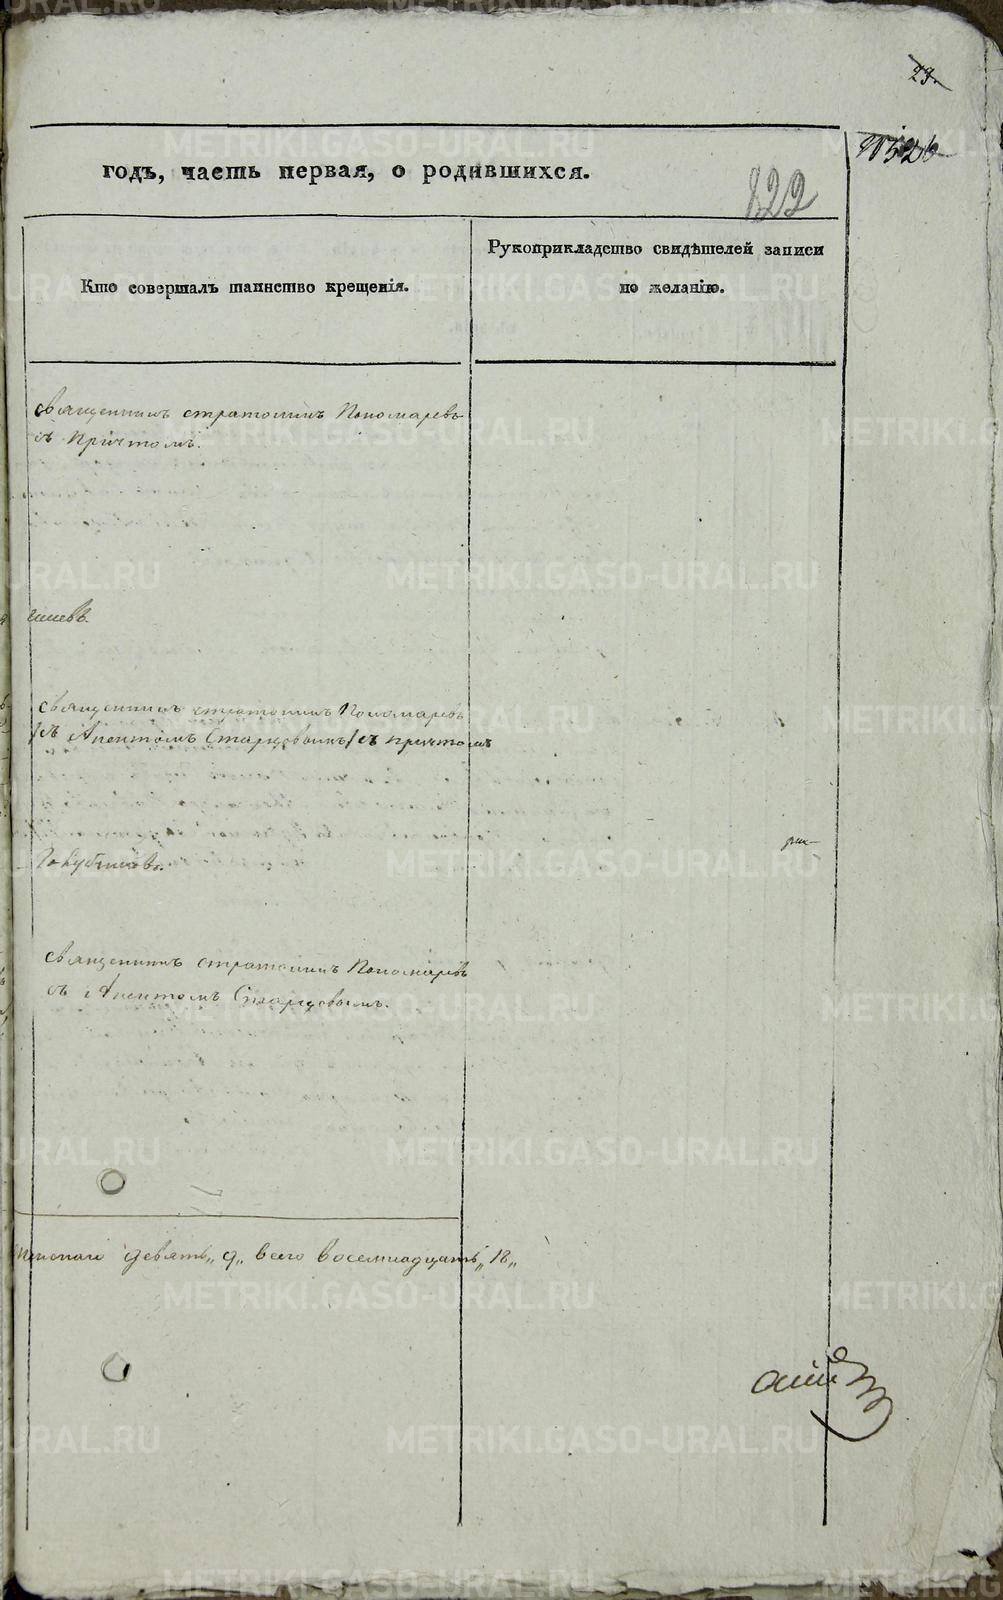 23.
годъ, часть первая, о родившихся.
822
Кто совершалъ таинство крещенія.
Рукоприкладство свидѣтелей записи
по желанію.
священникъ стратоникъ Пономаревъ
съ Причтомъ.
священникъ стратоникъ Пономаревъ
съ Старцовымъ съ причтомъ
священникъ стратоникъ Пономаревъ
съ Старцовымъ.
женскаго девять„ 9„ всего восемнадцать„ 18„
METRIKI.GASO-URAL.RU